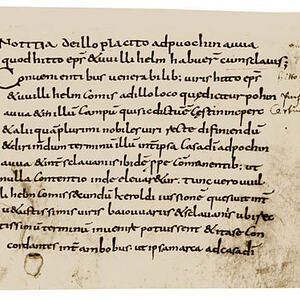 Notitia de illo placito ad puochin auua
quod hitto eps & uuillihelm habuer cum sclauis;
Convenientibus venerabilib; viris hitto eps
& uuillihelm comis ad illo loco qui dicitur pohin
auua & in illum campum qui sic dictus est in opere
& aliqua plurimi nobiles viri aeste diffiniendu
& dirimdum terminu illu int ipsa casadi ad pochin
auua & int sclauaneis ibidem ppe commanentib; ut
nulla contentio inde elevar&ur. tunc vero uuil
lihelm comis secundu heroldi iussione quesiuit int
u&ustissimis viris baiouuariis & sclauaniis ubi rec
tissimum terminu invenire potuissent & ita se con
cordantes int ambobus ut ipsa marca ad casadi